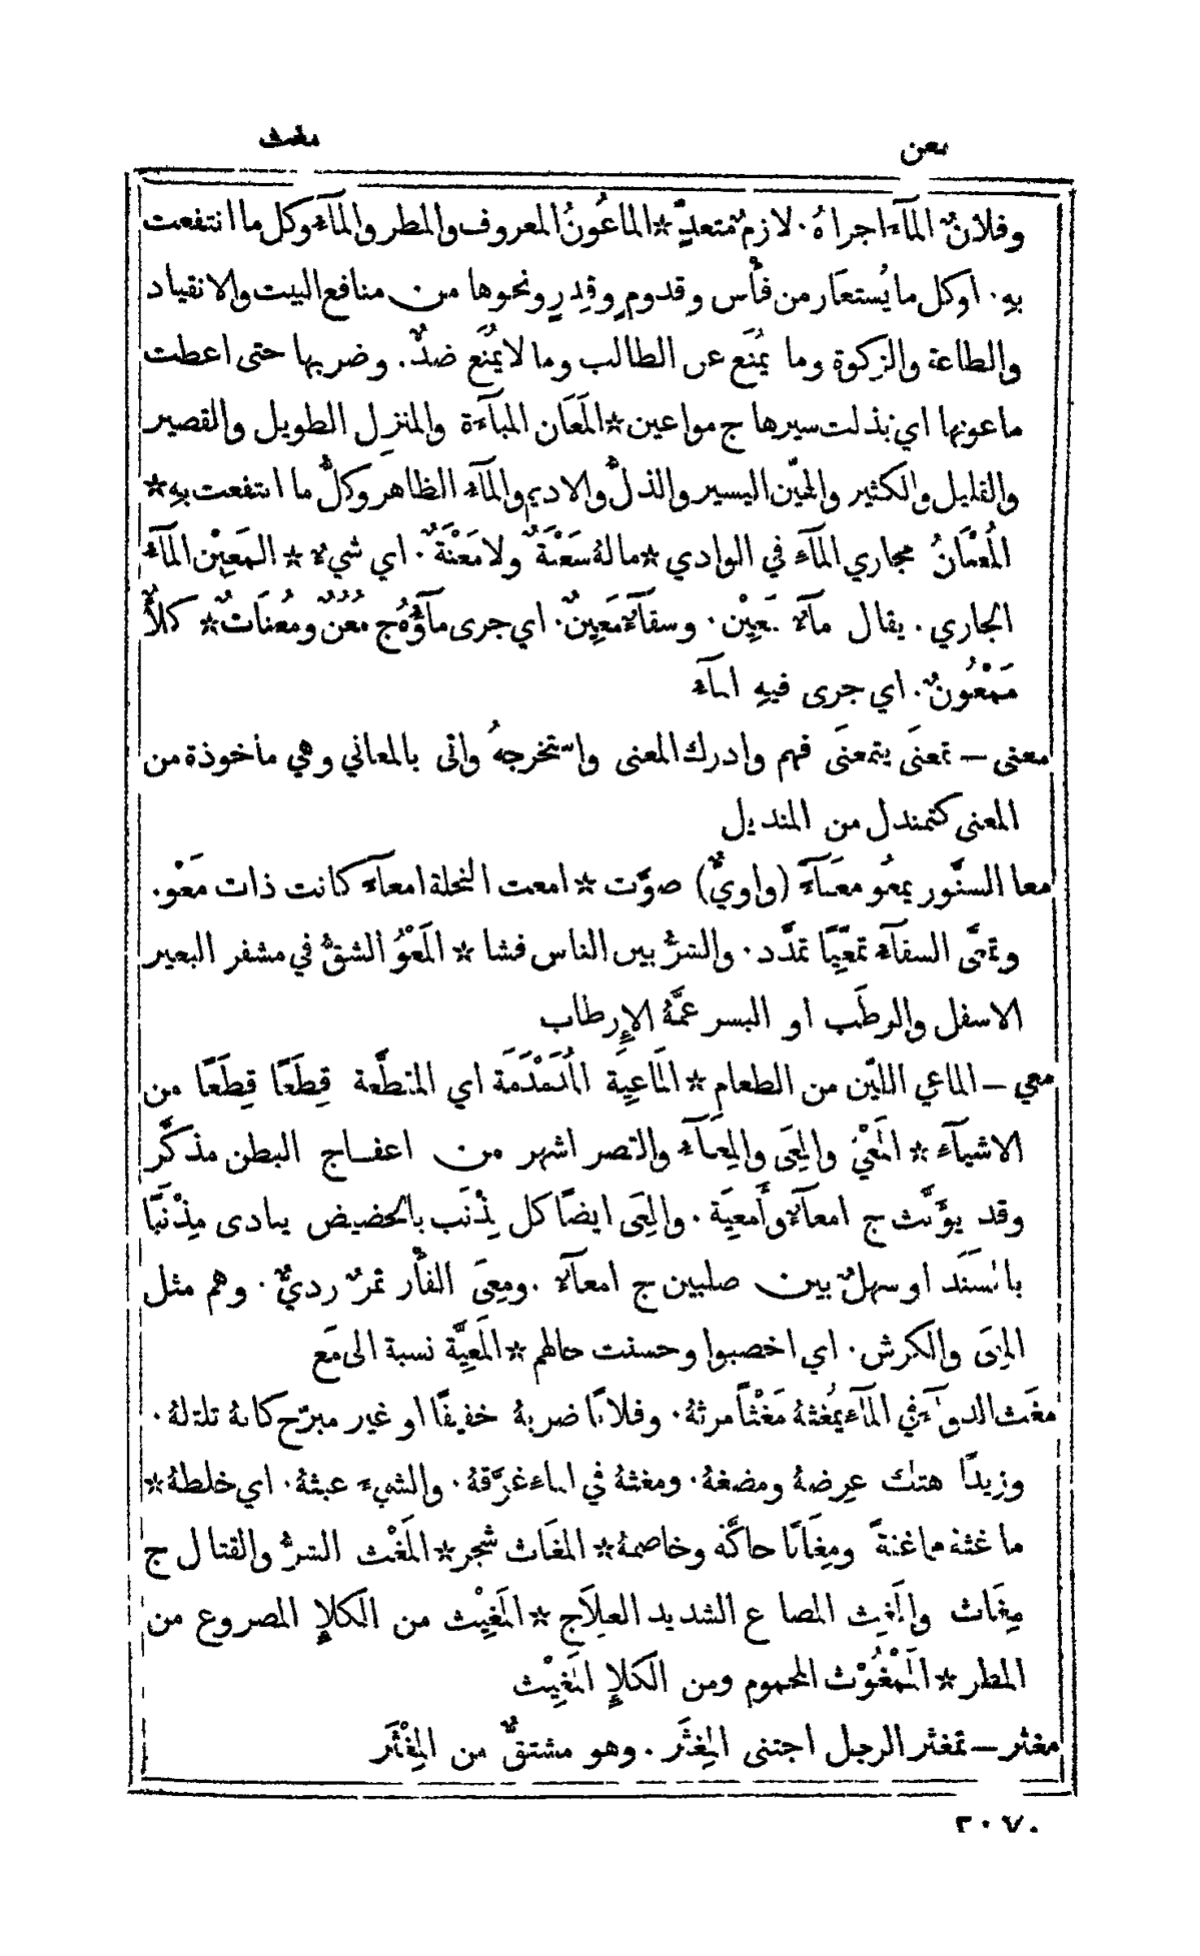 معن
مغث
وفلانٌ المآءَ اجراهُ. لازمٌ متعدٍّ * الماعُونُ المعروف والمطر والمآءُ وكل ما انتفعت
بهِ. اوكل ما يُستعَار من فأْس وقدومٍ وقِدرٍ ونحوها من منافع البيت والانقياد
والطاعة والزكوة وما يُمنَع عن الطالب وما لا يُمنَع ضدٌّ. وضربها حتى اعطت
ماعونها اي بذلت سيرها ج مواعين * المَعَان المبآءَة والمنزِل الطويل والقصير
والقليل والكثير والهيّن اليسير والذلُّ والاديم والمآءُ الظاهر وكلُّ ما انتفعت بهِ *
المُعنَانُ مجاري المآءِ في الوادي * مالهُ سَعْنَةٌ ولا مَعْنَةٌ. اي شيءٌ * المَعِيْن المآءُ
الجاري. يقال مآءٌ مَعِيْن. وسقآءٌ مَعِينٌ. اي جرى مآؤُهُ ج مُعُنٌ ومُعُنَاتٌ * كلأٌ
مَمْعُونٌ. اي جرى فيهِ المآءُ
معنى — تمعنَى يتمعنَى فهم وادرك المعنى واستخرجهُ واتى بالمعاني وهي ماخوذة من
المعنى كتمندل من المنديل
معا السنَّور يمعُو معَآءً (واويٌّ) صوَّت * امعت النخلة امعآءً كانت ذات مَعْو.
وتمعَّى السقآءُ تمعِّيًا تمدَّد. والشرُّ بين الناس فشا * المَعْوُ الشقُّ في مشفر البعير
الاسفل والرطَب او البسر عمَّهُ الإِرطاب
معي — الماعي الليّن من الطعام * المَاعِيَة المُدَمْدَمَة اي المقطَّعة قِطَعًا قِطَعًا من
الاشيآء * المَعْيُ والمِعَى والمِعَآءُ والقصر اشهر من اعفاج البطن مذكَّر
وقد يؤَنَّث ج امعآءٌ وأَمعِيَة. والمِعَى ايضًا كل مِذْنَب بالحضيض ينادى مِذْنَبًا
بالسَنَد او سهلٌ بين صلبين ج امعآءٌ. ومِعَى الفأْر تمرٌ رديٌّ. وهم مثل
المِعَى والكرش. اي اخصبوا وحسنت حالهم * المَعِيَّة نسبة الى مَعَ
مغَث الدوآءَ في المآءِ يمُغثهُ مَغْثًا مرثهُ. وفلانًا ضربهُ خفيفًا او غير مبرّح كانهُ تلتلهُ.
وزيدًا هتك عرضهُ ومضغهُ. ومغثهُ في الماءِ غرَّقهُ. والشيءَ عبثهُ. اي خلطهُ *
ماغثهُ مماغثةً ومِغَاثًا حاكَّه وخاصمهُ * المغَاث شجر * المَغْث الشرُّ والقتال ج
مِغَاث والمَغِث المصارع الشديد العِلاَج * المَغِيْث من الكلإِ المصروع من
المطر * المَمْغُوْث المحموم ومن الكلإِ المَغِيْث
مغثر — تمغثر الرجل اجتنى المِغثَر. وهو مشتقٌّ من المِغْثَر
٢٠٧٠